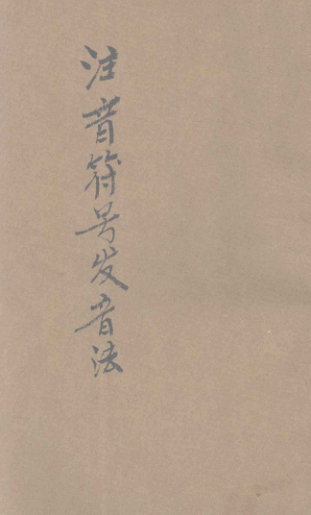 注音符号发音法